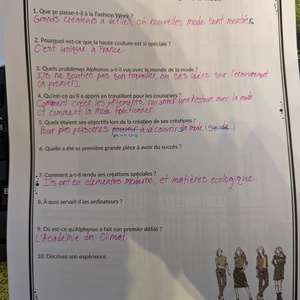 1. Que se passe-t-il à la Fashion Week ?
Grands créateurs a défilés, où nouvelles mode sont montrer.
2. Pourquoi est-ce que la haute couture est si spéciale ?
C'est unique a France.
3. Quels problèmes Alphonse a-t-il vu avec le monde de la mode ?
Ils ne soutien pas son travailler, ou ses idées sur l'environment
(a premier).
4. Qu'est-ce qu'il a appris en travaillant pour les couturiers ?
Comment créer les vêtements, raconter une histoire avec la mode
et comment la mode fonctionner.
5. Quels étaient ses objectifs lors de la création de ses créations ?
Pour des personnes à découvrir sa mode
6. Quelle a été sa première grande pièce à avoir du succès ?
7. Comment a-t-il rendu ses créations spéciales ?
Ils ont en elementes moderne, et matières ecologique.
8. À quoi servait-il les ordinateurs ?
9. Où est-ce qu'Alphonse a fait son premier défilé ?
L'Académie du Climat.
10. Décrivez son expérience.